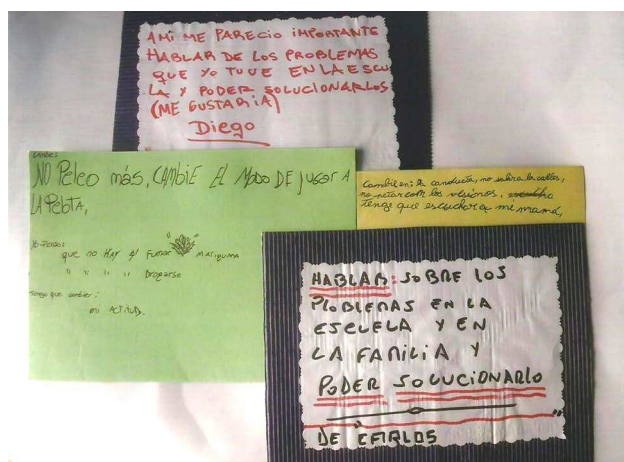 A Mi ME PARECIO iMPORTANTE
HABLAR DE LOS PROBLEMAS
QUE YO TUVE EN LA ESCU
LA Y PODER SOLUCIONARLOS
(ME GUSTARIA)
Diego
cambie:
NO Peleo más, CAMbiE El Modo DE jugar A
LA Pelota,
que no HAY q/ Fumar Mariguna
" " " " Drogarse
Tengo que cambiar:
mi ACTITUD.
Cambie en: la conducta, no salir a la calles,
no pelar com los vesinos,
tengo que escuchar a mi mamá,
HABLAR: SOBRE LOS
PROBLEMAS EN LA
ESCUELA Y EN
LA FAMILIA Y
PODER SOLUCIONARLO
DE "CARLOS"